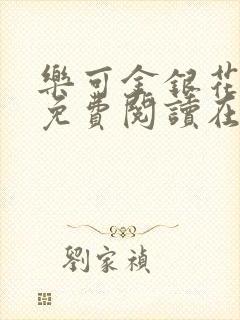 樂可金銀花
免費閱讀在
劉家禎